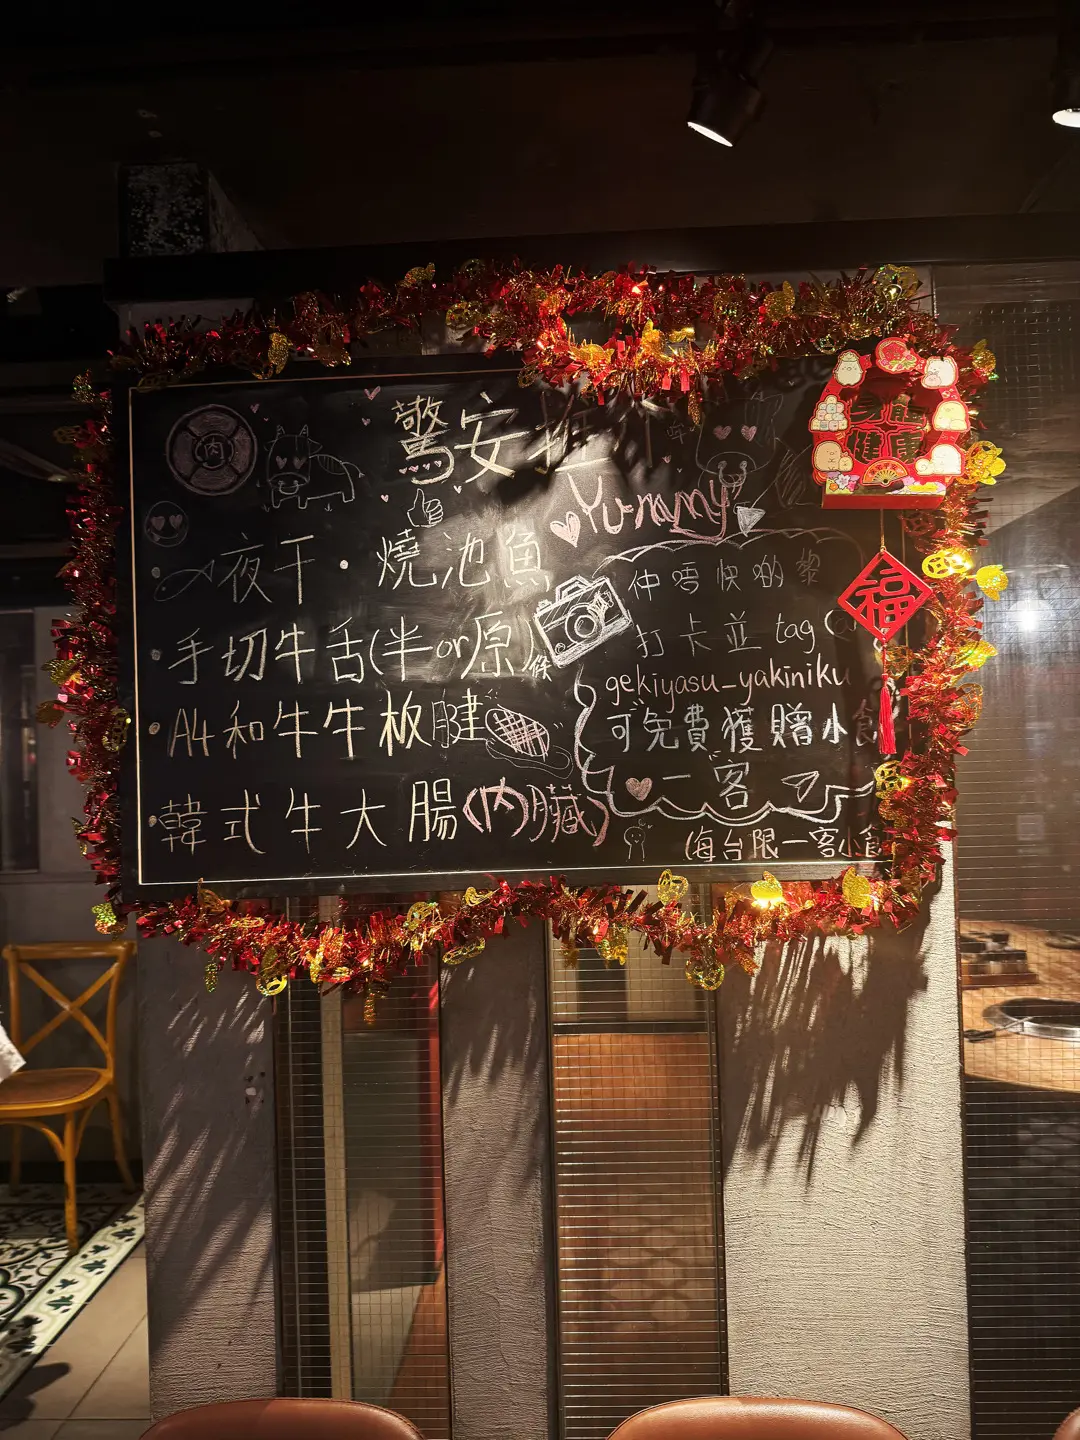 驚安推
肉
Yummy
一夜干·燒池魚
手切牛舌(半or原)條
A4和牛牛板腱
韓式牛大腸(内臟)
仲唔快啲黎
打卡並 tag
gekiyasu_yakiniku
可免費獲贈小食
一客
(每台限一客小食
身體
健康
福